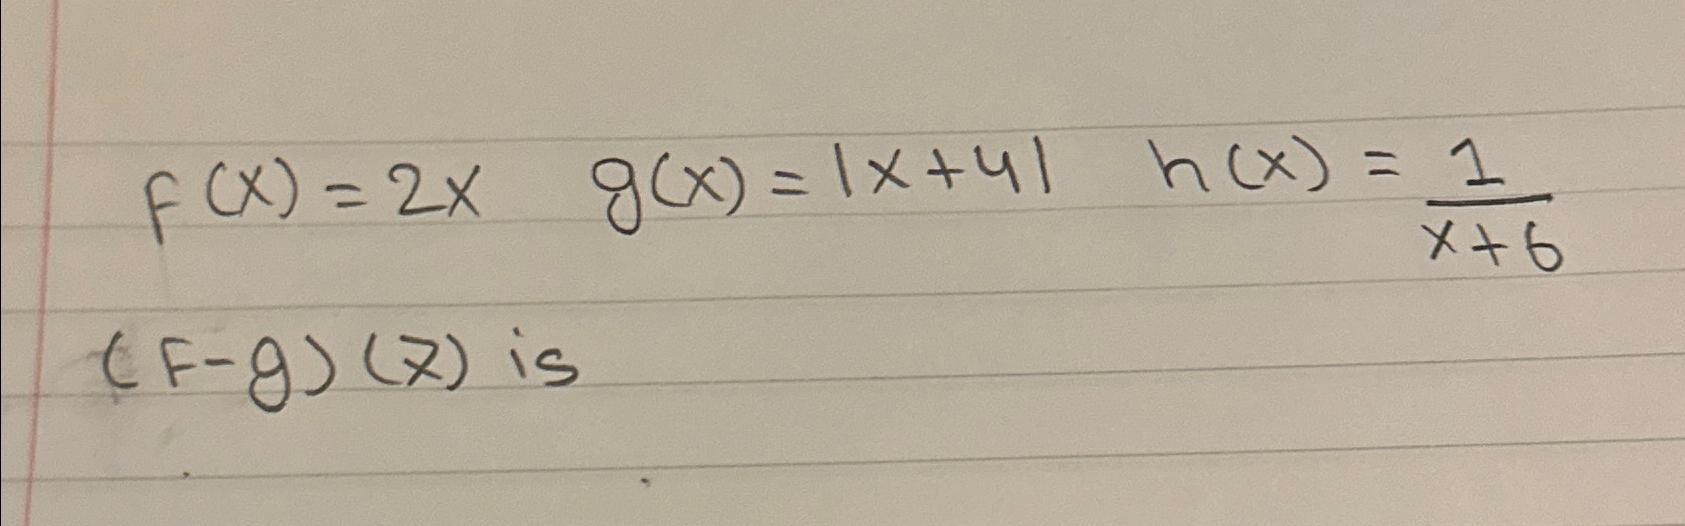 F(x) = 2x g(x) = |x+4| h(x) = 1/(x+6)
(F-g)(7) is